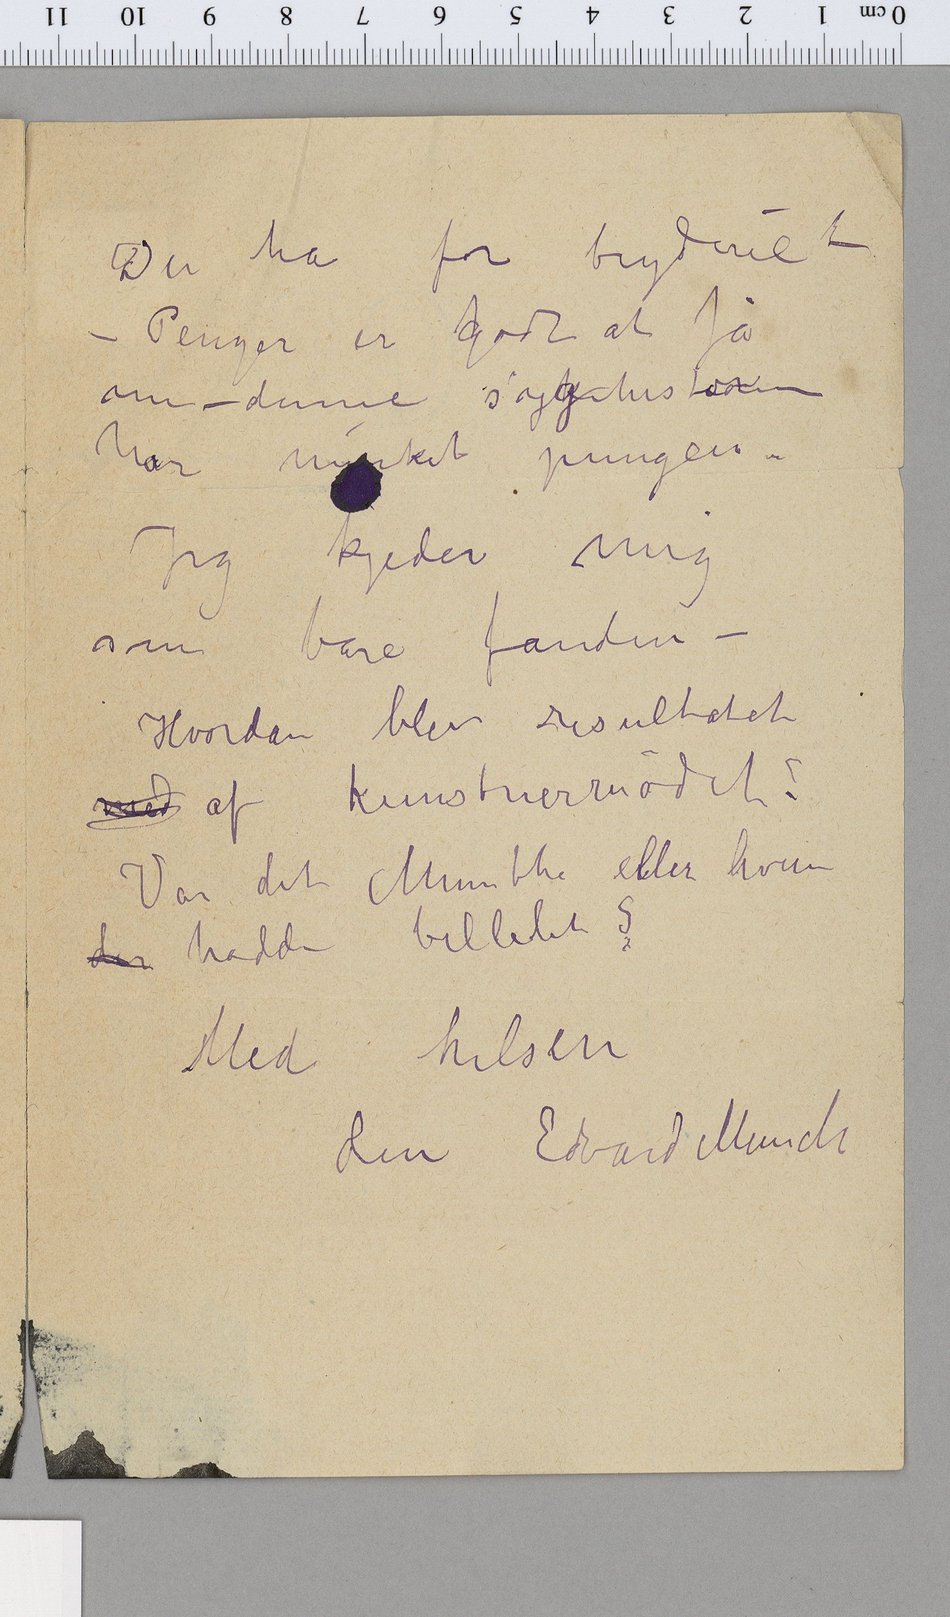 0 cm 1 2 3 4 5 6 7 8 9 10 11
Du ha for bryderiet
– Penger er godt at få
om – denne sygehistorien
har mærket pungen –
Jeg kjeder mig
som bare fanden –
Hvordan blev resultatet
med af kunstnermödet?
Var det Munthe eller hvem
der hadde billedet?
Med hilsen
din Edvard Munch